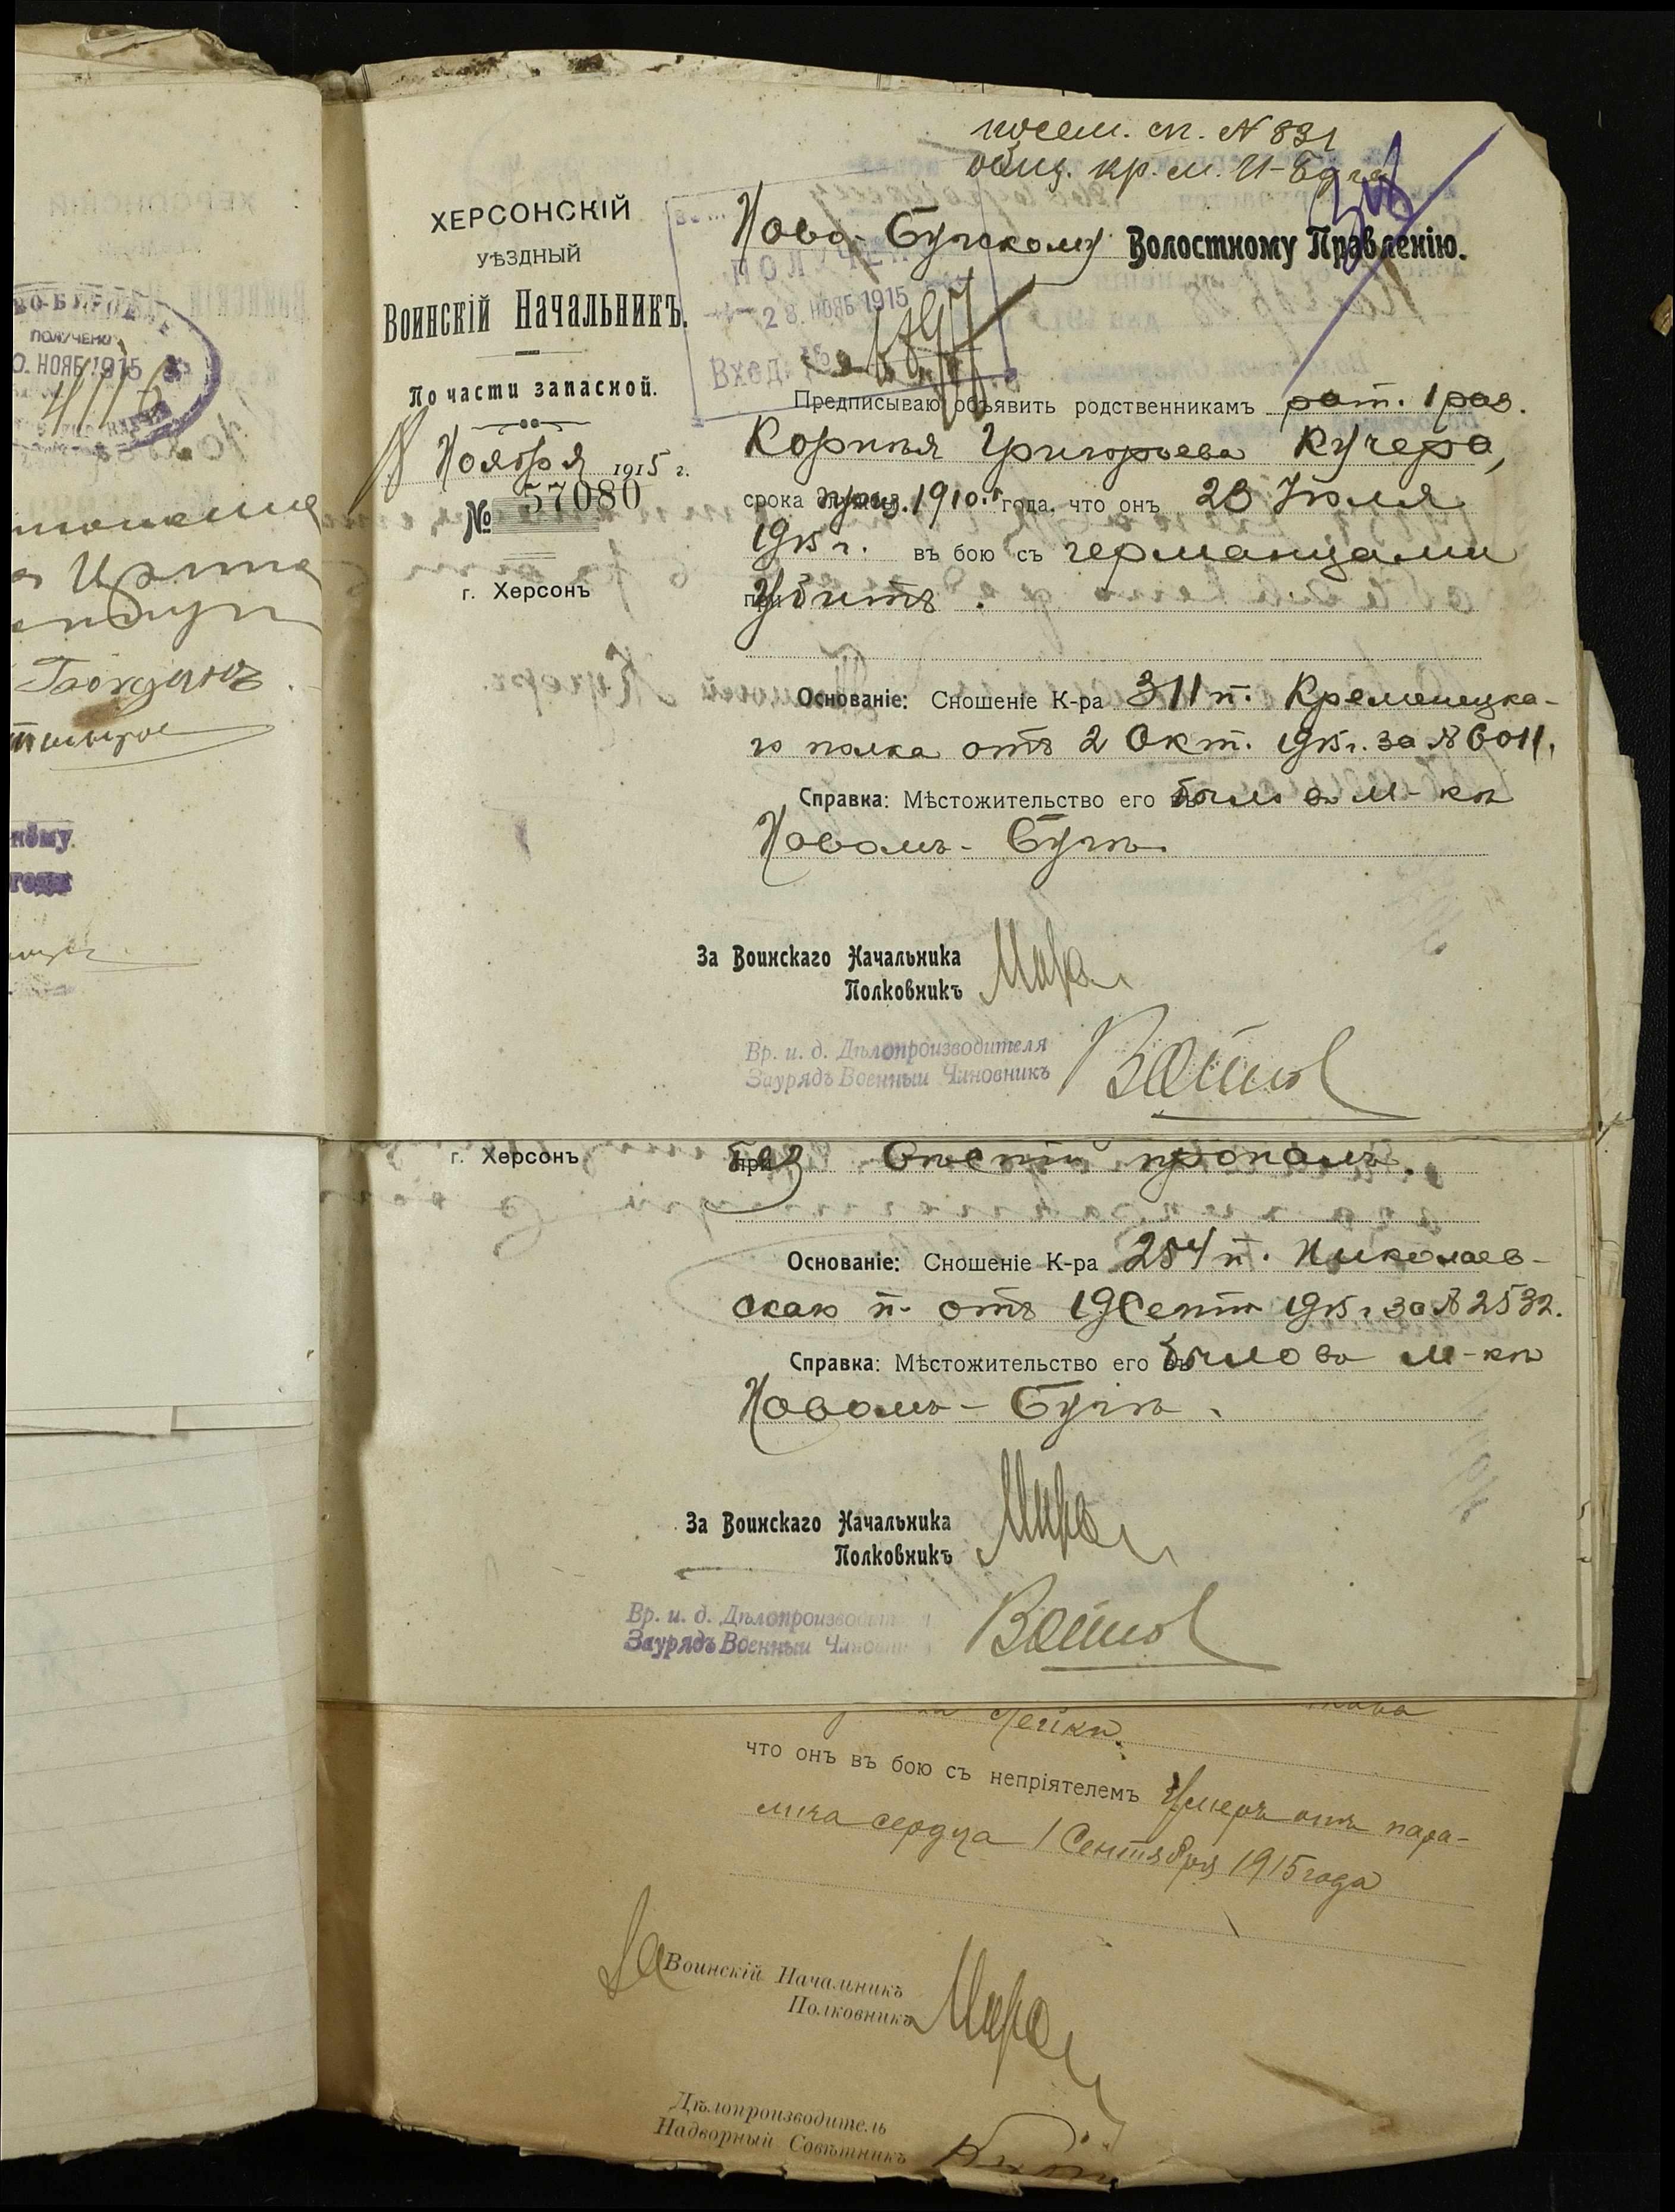 посем. сп. № 831
общ. кр. м. Н-Буга
ХЕРСОНСКІЙ
УѢЗДНЫЙ
Воинскій Начальникъ.
По части запасной.
Ноября 1915 г.
№ 57080
г. Херсонъ
Ново-Бугскому Волостному Правленію.
ПОЛУЧЕНО
28 НОЯБ 1915
Вход.
Предписываю объявить родственникамъ рат. 1 раз.
Корнѣя Григорьева Кучера,
срока призв. 1910 года, что онъ 23 Іюля
1915 г. въ бою съ германцами
при убитъ.
Основаніе: Сношеніе К-ра 311 п. Кременецка-
го полка отъ 2 Окт. 1915 г. за № 6011.
Справка: Мѣстожительство его было въ м-кѣ
Новомъ-Бугѣ.
За Воинскаго Начальника
Полковникъ
Вр. и. д. Дѣлопроизводителя
Заурядъ Военный Чиновникъ
г. Херсонъ
при без вѣсти пропалъ.
Основаніе: Сношеніе К-ра 254 п. Николаев-
скаго п. отъ 19 Септ. 1915 г. за № 2532.
Справка: Мѣстожительство его было въ м-кѣ
Новомъ-Бугѣ.
За Воинскаго Начальника
Полковникъ
Вр. и. д. Дѣлопроизводителя
Заурядъ Военный Чиновникъ
что онъ въ бою съ непріятелемъ умеръ отъ пара-
лича сердца 1 Сентября 1915 года
За Воинскій Начальникъ
Полковникъ
Дѣлопроизводитель
Надворный Совѣтникъ
ПОЛУЧЕНО
НОЯБ 1915
4116